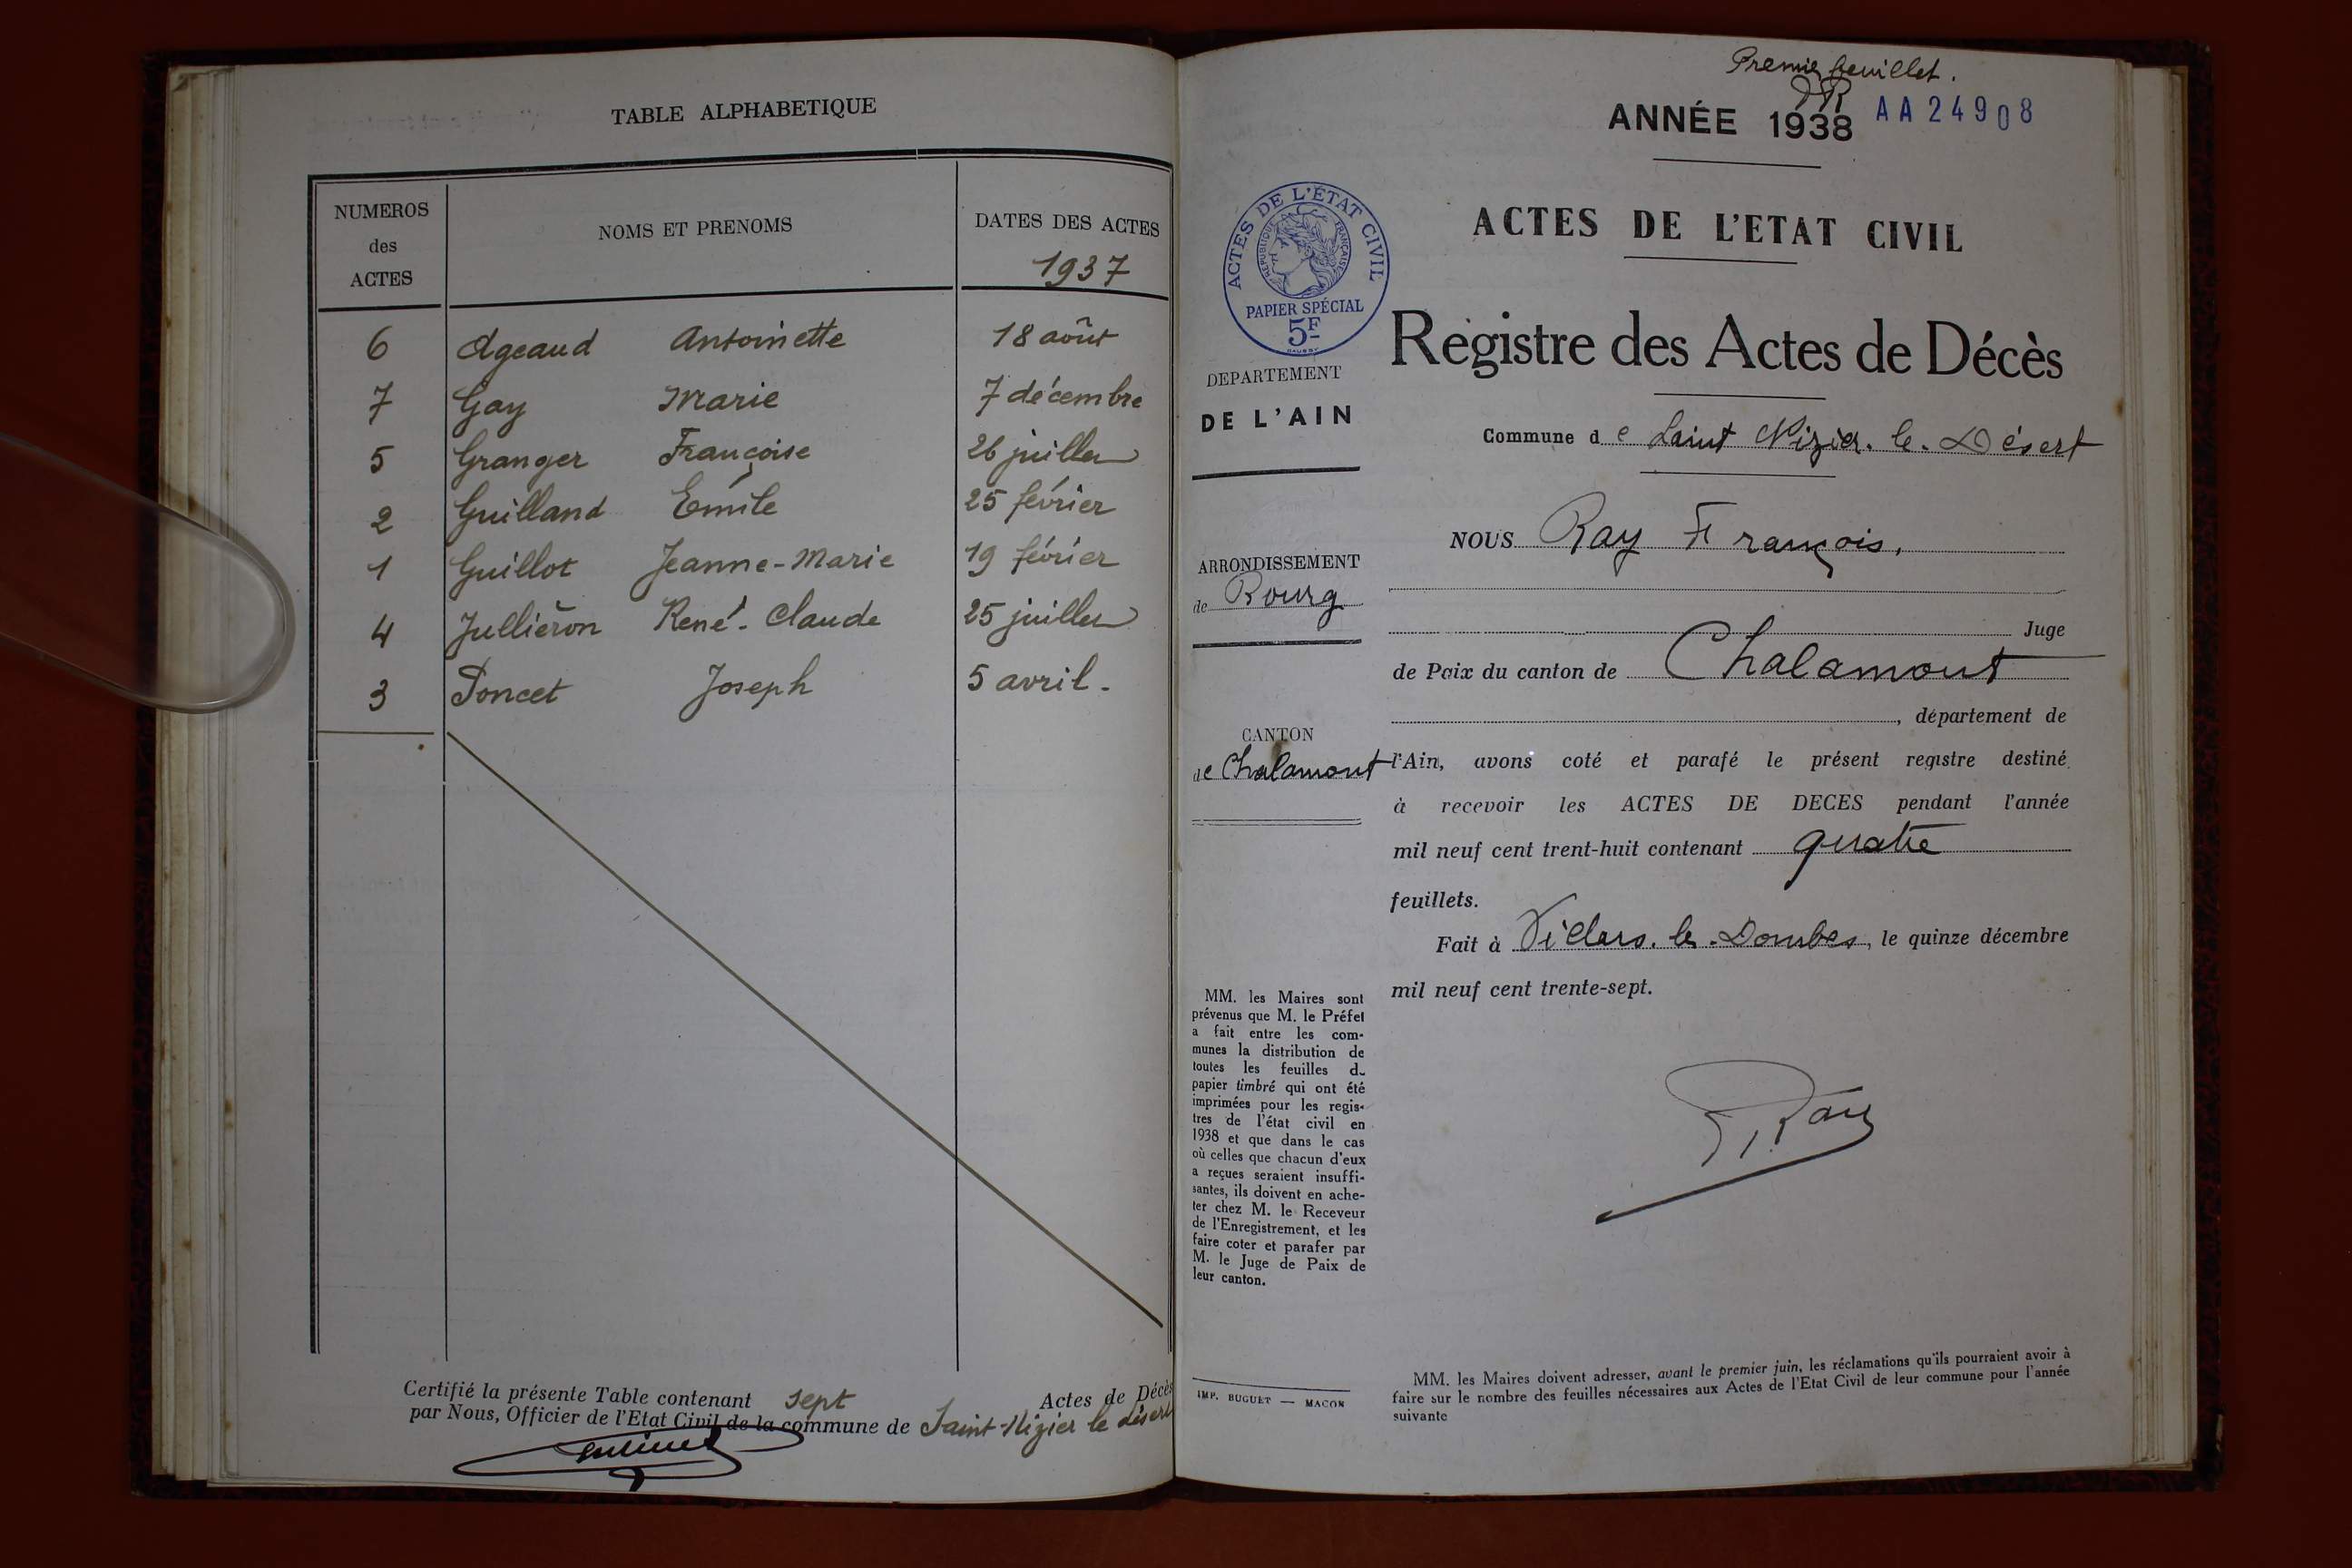 TABLE ALPHABETIQUE
NUMEROS des ACTES
NOMS ET PRENOMS
DATES DES ACTES
1937
6 Ageaud Antoinette 18 août
7 Gay Marie 7 décembre
5 Granger Françoise 26 juillet
2 Guilland Emile 25 février
1 Guillot Jeanne-Marie 19 février
4 Jullièron René-Claude 25 juillet
3 Poncet Joseph 5 avril.
Certifié la présente Table contenant sept Actes de Décès
par Nous, Officier de l'Etat Civil de la commune de Saint-Nizier le désert
Premier feuillet.
ANNÉE 1938 AA 24908
ACTES DE L'ÉTAT CIVIL
REPUBLIQUE FRANÇAISE
PAPIER SPÉCIAL
5F
ACTES DE L'ETAT CIVIL
Registre des Actes de Décès
DEPARTEMENT
DE L'AIN
ARRONDISSEMENT
de Bourg
CANTON
de Chalamont
Commune de Saint Nizier-le-Désert
NOUS Ray François,
Juge
de Paix du canton de Chalamont
, département de
l'Ain, avons coté et parafé le présent registre destiné
à recevoir les ACTES DE DECES pendant l'année
mil neuf cent trent-huit contenant quatre
feuillets.
Fait à Villars-les-Dombes, le quinze décembre
mil neuf cent trente-sept.
Ray
MM. les Maires sont
prévenus que M. le Préfet
a fait entre les com-
munes la distribution de
toutes les feuilles d
papier timbré qui ont été
imprimées pour les regis-
tres de l'état civil en
1938 et que dans le cas
où celles que chacun d'eux
a reçues seraient insuffi-
santes, ils doivent en ache-
ter chez M. le Receveur
de l'Enregistrement, et les
faire coter et parafer par
M. le Juge de Paix de
leur canton.
IMP. BUGUET — MACON
MM. les Maires doivent adresser, avant le premier juin, les réclamations qu'ils pourraient avoir à
faire sur le nombre des feuilles nécessaires aux Actes de l'Etat Civil de leur commune pour l'année
suivante